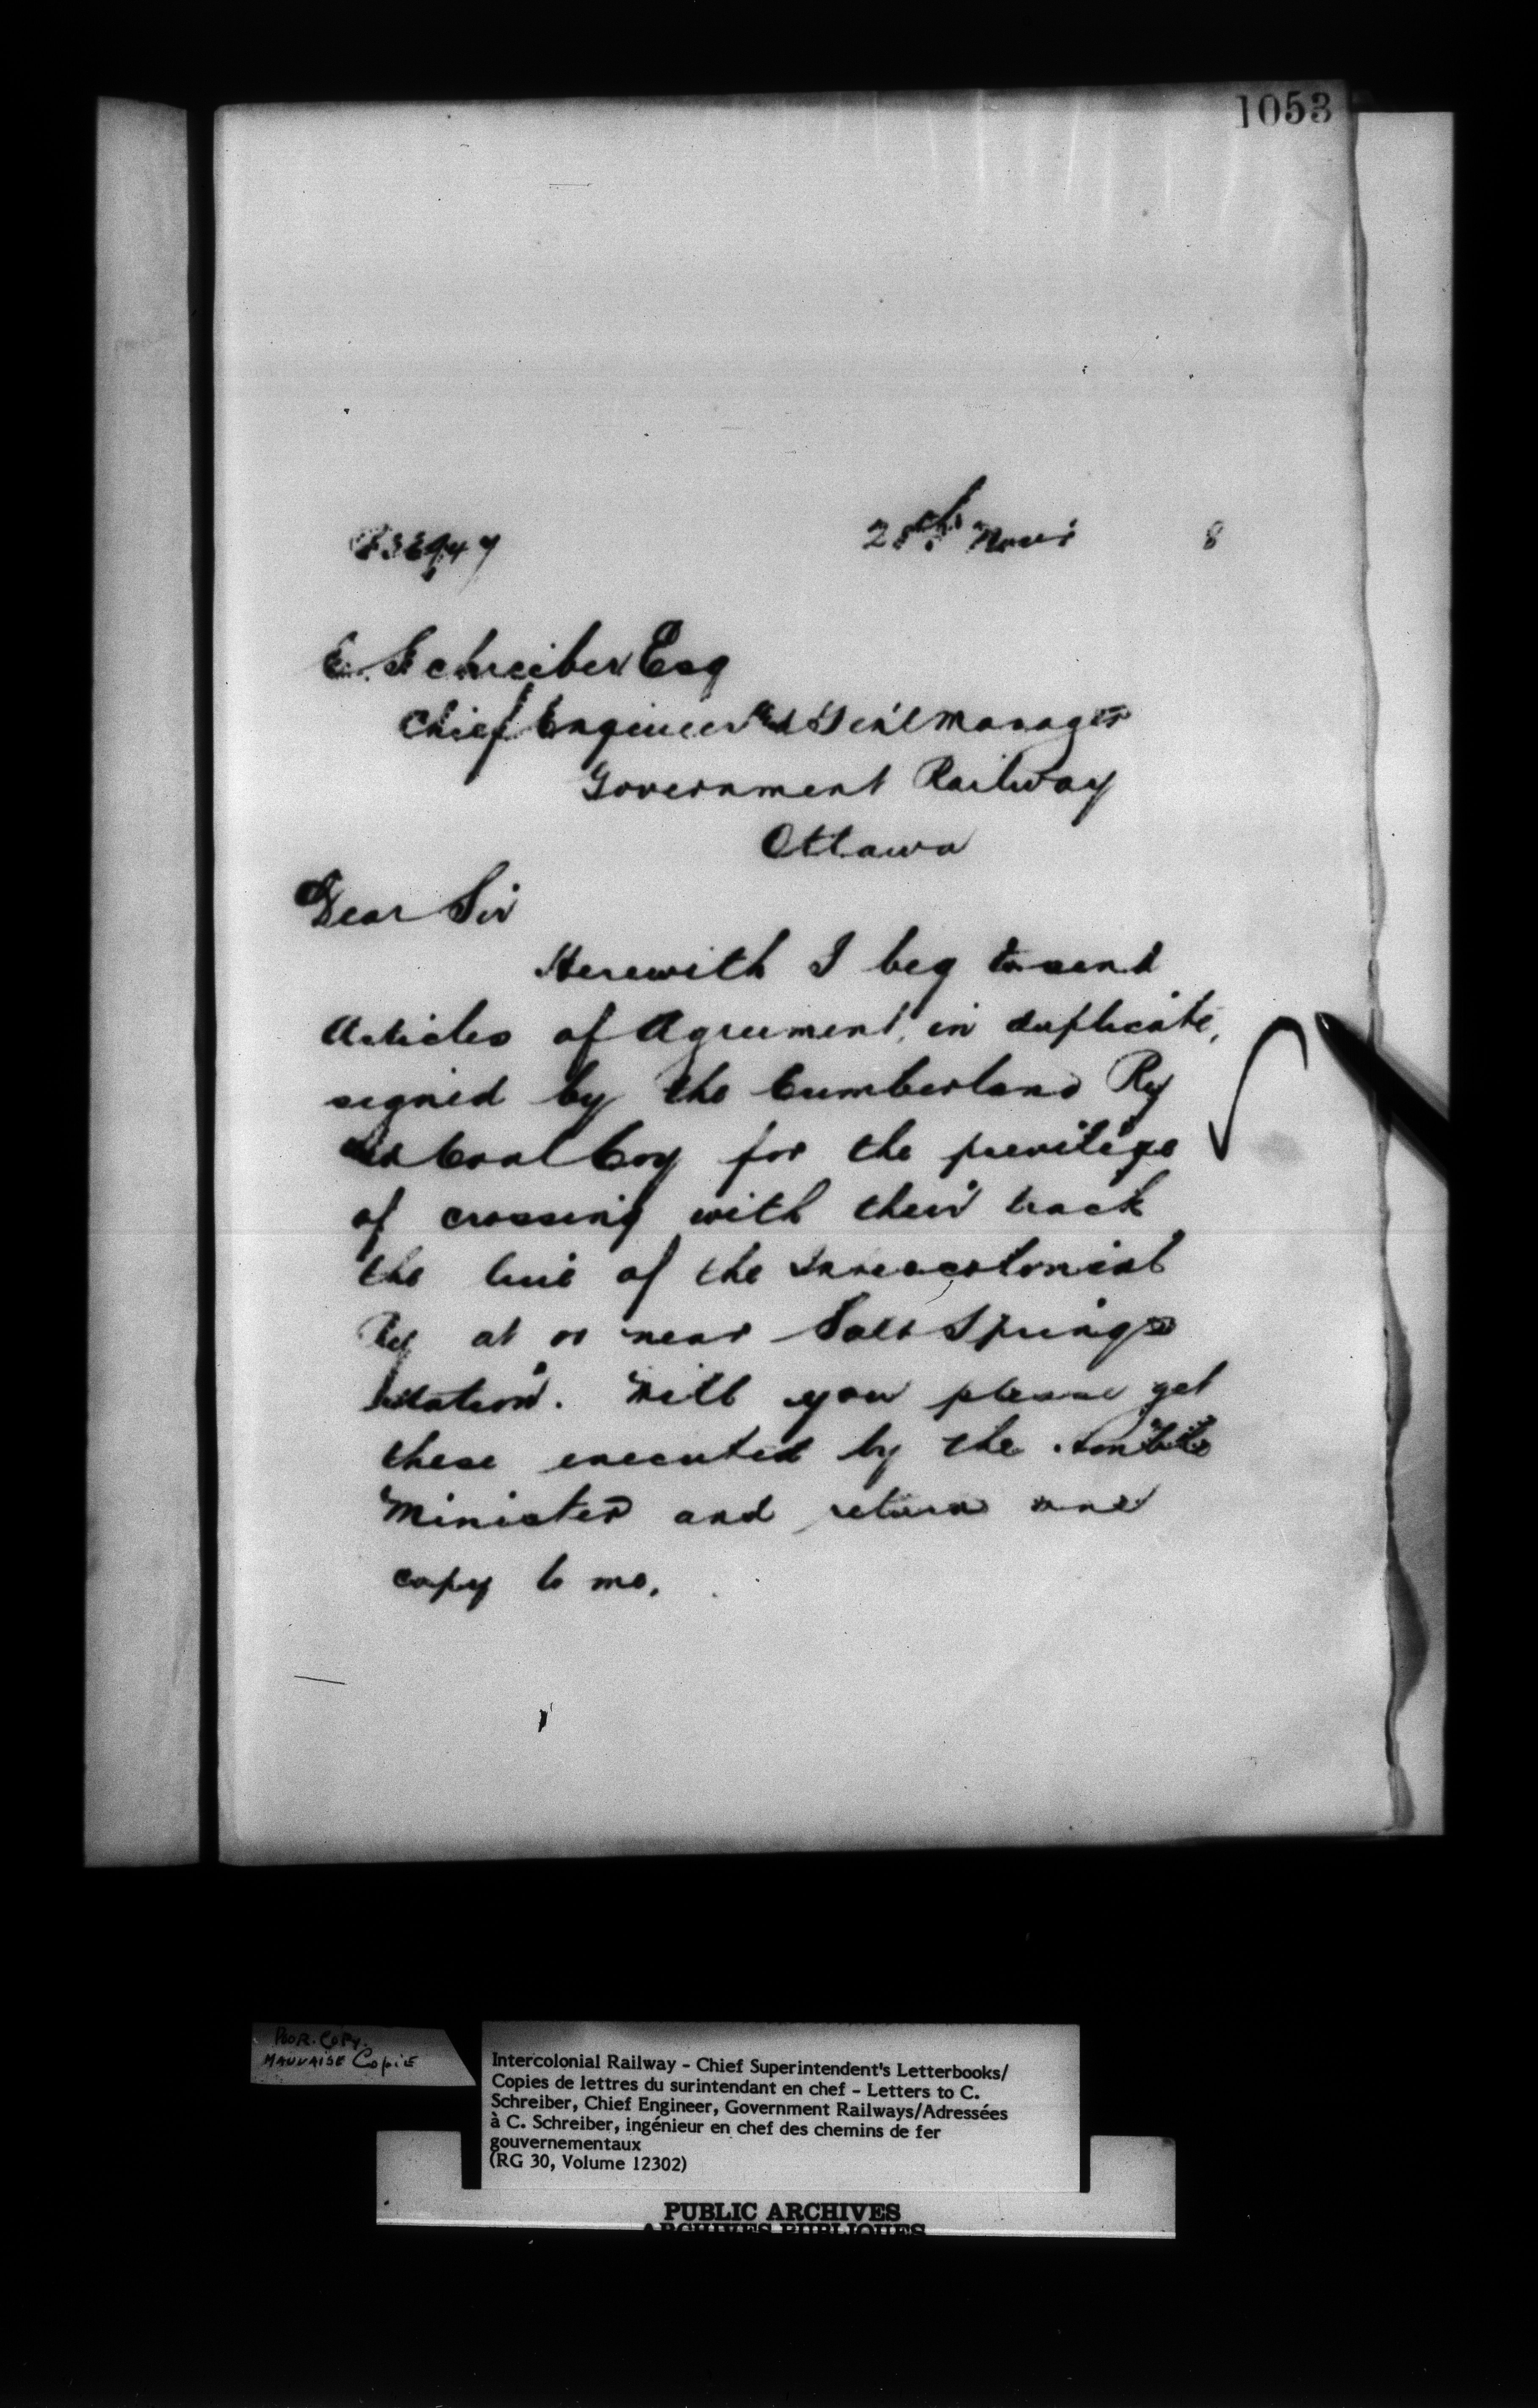 1053
28th Novr 8
C. Schreiber Esq
Chief Engineer and Gen'l Manager
Government Railway
Ottawa
Dear Sir
Herewith I beg to send
Articles of Agreement, in duplicate,
signed by the Cumberland Ry
and Coal Coy for the privilege
of crossing with their track
the line of the Intercolonial
Ry at or near Salt Springs
station. Will you please get
these executed by the
Minister and return one
copy to me.
POOR COPY.
MAUVAISE COPIE
Intercolonial Railway - Chief Superintendent's Letterbooks/
Copies de lettres du surintendant en chef - Letters to C.
Schreiber, Chief Engineer, Government Railways/Adressées
à C. Schreiber, ingénieur en chef des chemins de fer
gouvernementaux
(RG 30, Volume 12302)
PUBLIC ARCHIVES
ARCHIVES PUBLIQUES